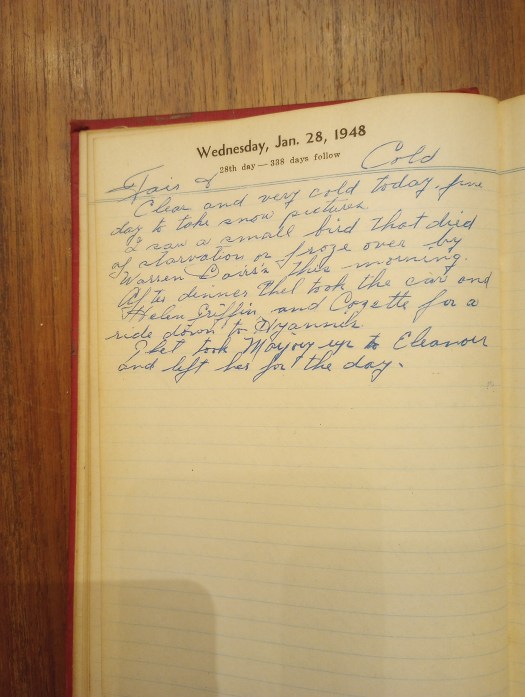 Wednesday, Jan. 28, 1948
28th day — 338 days follow
Fair & Cold
Clear and very cold today, fine
day to take snow pictures.
I saw a small bird that died
of starvation or froze over by
Warren this morning.
After dinner took the car and
Helen Griffin and Cozette for a
ride down to Hyannis.
took Marjory up to Eleanor
and left her for the day.